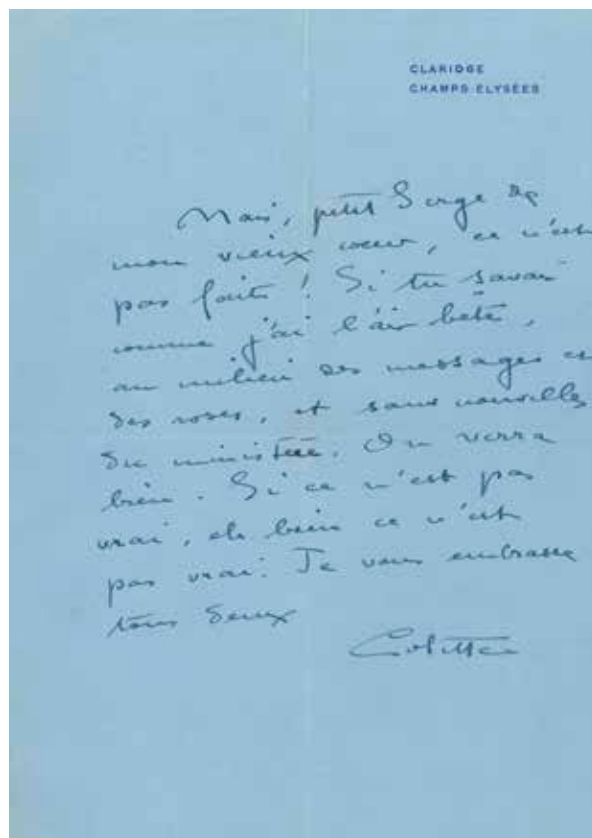 CLARIDGE
CHAMPS ELYSÉES
Mais, petit Serge de
mon vieux coeur, ce n'est
pas fait ! Si tu savais
comme j'ai l'air bête,
au milieu des messages et
des roses, et sans nouvelles
du ministère. On verra
bien. Si ce n'est pas
vrai, eh bien ce n'est
pas vrai. Je vous embrasse
tous deux
Colette